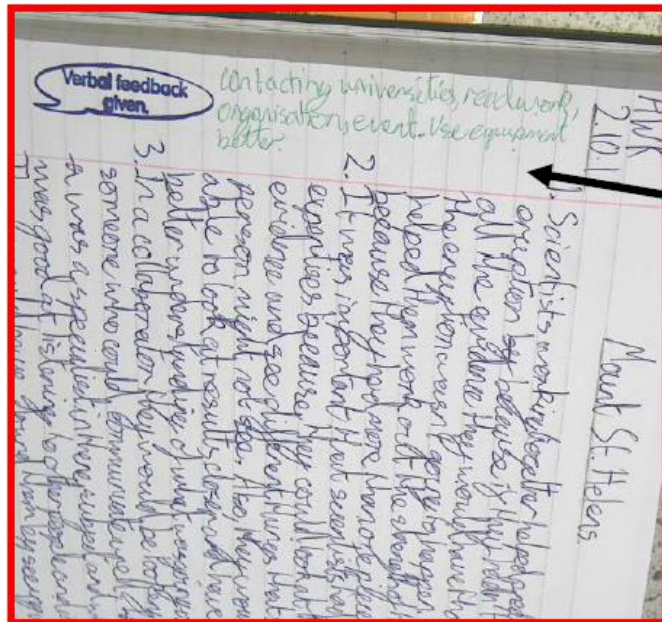 HWK
2.10.1
Mount St. Helens
Verbal feedback
given.
contacting universities, read work,
organisation, event. Use equipment
better.
1. Scientists working together helped pred
eruption by because if they didn't
all the evidence they would have tho
the eruption wasn't going to happen
helped them work out the strength
because they had more than one piece
2. It was important that scientists had
expertises because they could look at
evidence and see different things that
person might not see. Also they wou
able to look at results closer and have
better understanding of what was
3. In a collaboration they would be looking
someone who could communicate well,
a was a specialist in there subject and
was good at listening to other people and